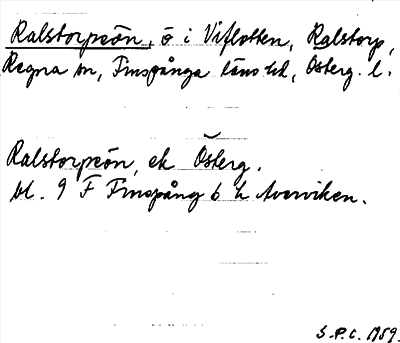 Ralstorpsön, ö i Viflotten, Ralstorp,
Regna sn, Finspånga läns hd, Österg. l.
Ralstorpsön, ek Österg.
bl. 9 F Finspång 6 h Averviken.
S.P.C. 1959.